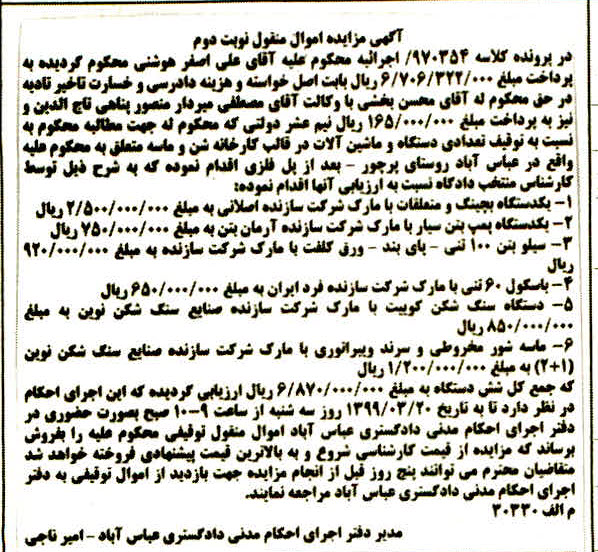 آگهی مزایده اموال منقول نوبت دوم
در پرونده کلاسه ۹۷۰۳۵۴/ اجرائیه محکوم علیه آقای علی اصغر هوشنی محکوم گردیده به
پرداخت مبلغ ۶/۷۰۶/۳۲۲/۰۰۰ ریال بابت اصل خواسته و هزینه دادرسی و خسارت تاخیر تادیه
در حق محکوم له آقای محسن بخشی با وکالت آقای مصطفی میردار منصور پناهی تاج الدین و
نیز به پرداخت مبلغ ۱۶۵/۰۰۰/۰۰۰ ریال نیم عشر دولتی که محکوم له جهت مطالبه محکوم به
نسبت به توقیف تعدادی دستگاه و ماشین آلات در قالب کارخانه شن و ماسه متعلق به محکوم علیه
واقع در عباس آباد روستای پرچور - بعد از پل فلزی اقدام نموده که به شرح ذیل توسط
کارشناس منتخب دادگاه نسبت به ارزیابی آنها اقدام نموده:
۱- یکدستگاه بچینگ و متعلقات با مارک شرکت سازنده اصلانی به مبلغ ۲/۵۰۰/۰۰۰/۰۰۰ ریال
۲- یکدستگاه پمپ بتن سیار با مارک شرکت سازنده آرمان بتن به مبلغ ۷۵۰/۰۰۰/۰۰۰ ریال
۳- سیلو بتن ۱۰۰ تنی - پای بند - ورق کلفت با مارک شرکت سازنده به مبلغ ۹۲۰/۰۰۰/۰۰۰
ریال
۴- باسکول ۶۰ تنی با مارک شرکت سازنده فرد ایران به مبلغ ۶۵۰/۰۰۰/۰۰۰ ریال
۵- دستگاه سنگ شکن کوبیت با مارک شرکت سازنده صنایع سنگ شکن نوین به مبلغ
۸۵۰/۰۰۰/۰۰۰ ریال
۶- ماسه شور مخروطی و سرند ویبراتوری با مارک شرکت سازنده صنایع سنگ شکن نوین
(۱+۲) به مبلغ ۱/۲۰۰/۰۰۰/۰۰۰ ریال
که جمع کل شش دستگاه به مبلغ ۶/۸۷۰/۰۰۰/۰۰۰ ریال ارزیابی گردیده که این اجرای احکام
در نظر دارد تا به تاریخ ۱۳۹۹/۰۳/۲۰ روز سه شنبه از ساعت ۹-۱۰ صبح بصورت حضوری در
دفتر اجرای احکام مدنی دادگستری عباس آباد اموال منقول توقیفی محکوم علیه را بفروش
برساند که مزایده از قیمت کارشناسی شروع و به بالاترین قیمت پیشنهادی فروخته خواهد شد
متقاضیان محترم می توانند پنج روز قبل از انجام مزایده جهت بازدید از اموال توقیفی به دفتر
اجرای احکام مدنی دادگستری عباس آباد مراجعه نمایند.
م الف ۳۰۳۳۰
مدیر دفتر اجرای احکام مدنی دادگستری عباس آباد - امیر ناجی